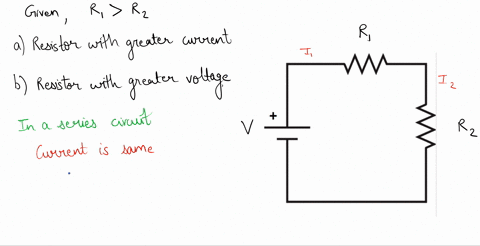 Given, R₁ > R₂
a) Resistor with greater current
b) Resistor with greater voltage
In a series circuit
Current is same
R₁
I₁
I₂
+
V
R₂